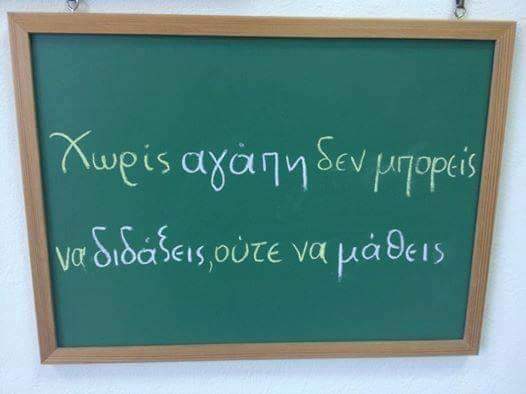 Χωρίς αγάπη δεν μπορείς
να διδάξεις, ούτε να μάθεις